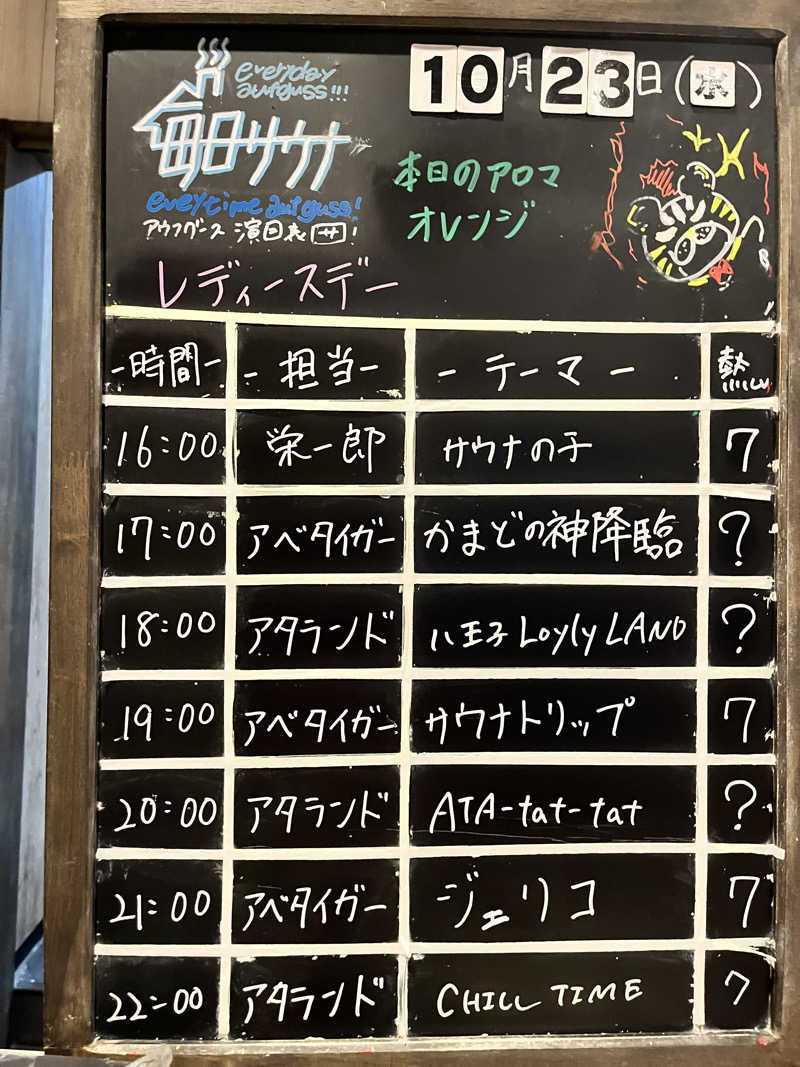 everyday
aufguss!!!
10月23日(水)
毎日サウナ
everytime aufguss!
アウフグース 演目表 サ!
本日のアロマ
オレンジ
レディースデー
-時間- -担当- -テーマ- 熱
16:00 栄一郎 サウナの子 7
17:00 アベタイガー かまどの神降臨 ?
18:00 アタランド 八王子 Loyly LAND ?
19:00 アベタイガー サウナトリップ 7
20:00 アタランド ATA-tat-tat ?
21:00 アベタイガー ジェリコ 7
22:00 アタランド CHILL TIME 7